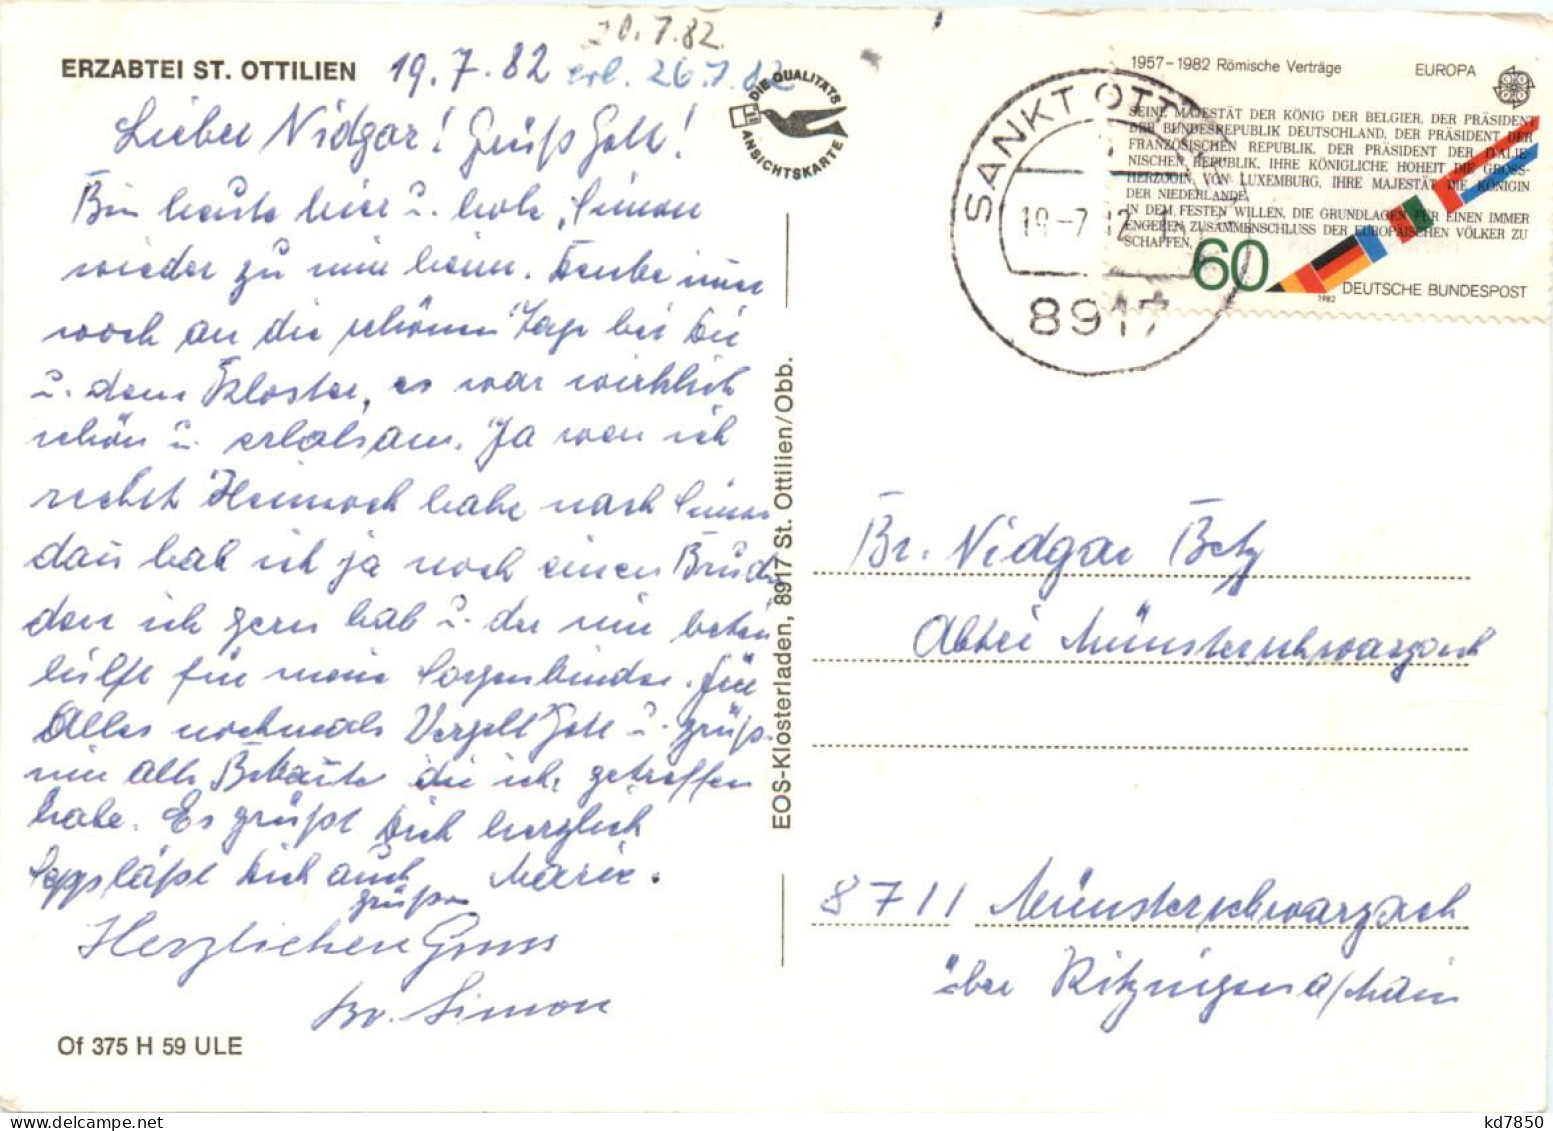 ERZABTEI ST. OTTILIEN
19.7.82
20.7.82
erl. 26.7.82
Lieber Nidgar! Grüß Gott!
Bin heute hier u. hole Simon
wieder zu mir heim. Denke immer
noch an die schönen Tage bei Dir
u. dem Kloster, es war wirklich
schön u. erholsam. Ja wen ich
recht Heimweh habe nach Simon
dan hab ich ja noch einen Bruder
den ich gern hab u. der mir beten
hilft für meine Sorgenkinder. Für
Alles nochmals Vergelt Gott u. grüß
mir alle Bekante die ich getroffen
habe. Es grüßt Dich herzlich
Sepp läßt Dich auch grüßen Marie.
Herzlichen Gruss
Br. Simon
Of 375 H 59 ULE
DIE QUALITÄTS
ANSICHTSKARTE
EOS-Klosterladen, 8917 St. Ottilien/Obb.
SANKT OTT
8917
1957–1982 Römische Verträge
EUROPA
SEINE MAJESTÄT DER KÖNIG DER BELGIER, DER PRÄSIDENT
DER BUNDESREPUBLIK DEUTSCHLAND, DER PRÄSIDENT DER
FRANZÖSISCHEN REPUBLIK, DER PRÄSIDENT DER ITALIE-
NISCHEN REPUBLIK, IHRE KÖNIGLICHE HOHEIT DIE GROSS-
HERZOGIN VON LUXEMBURG, IHRE MAJESTÄT DIE KÖNIGIN
DER NIEDERLANDE,
IN DEM FESTEN WILLEN, DIE GRUNDLAGEN FÜR EINEN IMMER
ENGEREN ZUSAMMENSCHLUSS DER EUROPÄISCHEN VÖLKER ZU
SCHAFFEN,
60
1982
DEUTSCHE BUNDESPOST
Br. Nidgar Betz
Abtei Münsterschwarzach
8711 Münsterschwarzach
über Kitzingen a/Main
kd7850